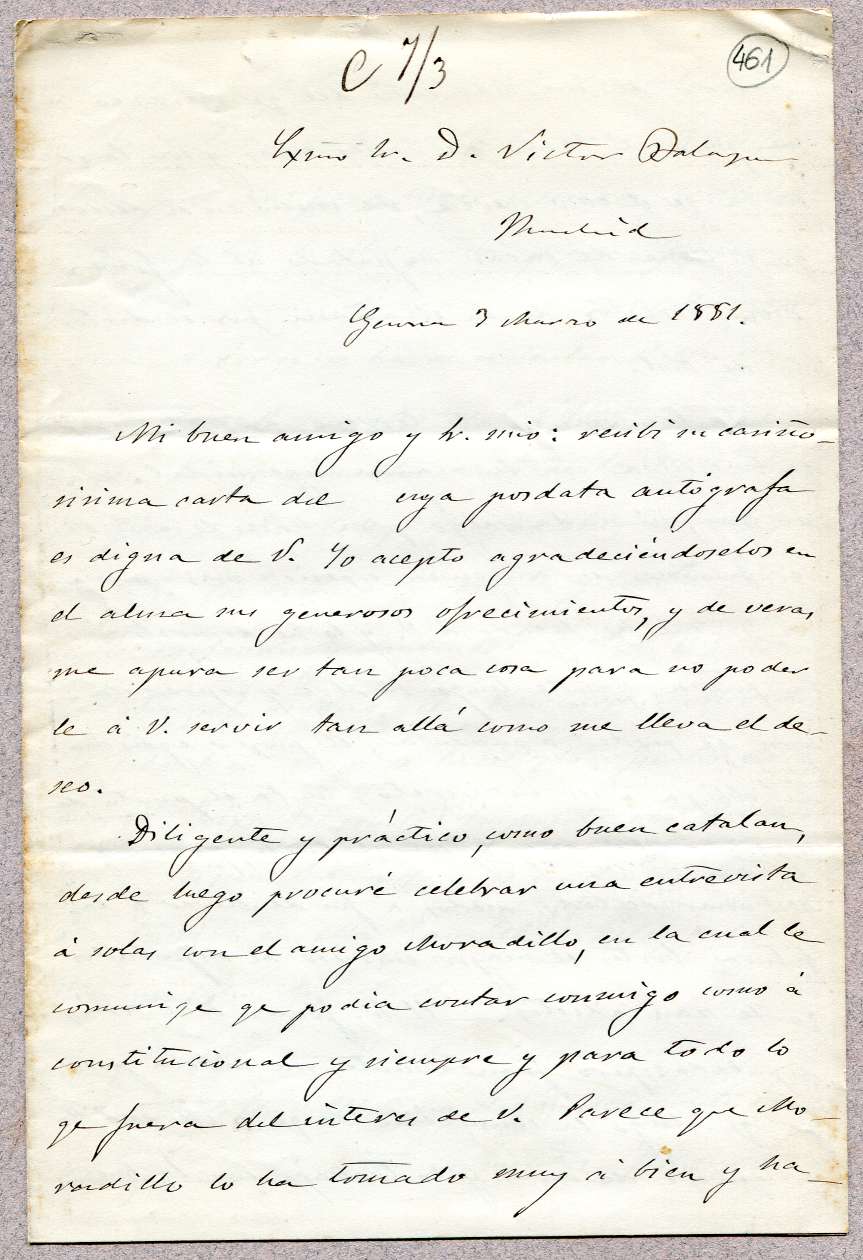 C 7/3
461
Exmo Sr. D. Victor Balaguer
Madrid
Gerona 3 Marzo de 1881.
Mi buen amigo y Sr. mio: recibi su cariño-
sisima carta del cuya posdata autógrafa
es digna de V. Yo acepto agradeciéndoselos en
el alma sus generosos ofrecimientos, y de veras
me apura ser tan poca cosa para no poder
le á V. servir tan allá como me lleva el de-
seo.
Diligente y práctico, como buen catalan,
desde luego procuré celebrar una entrevista
á solas con el amigo Moradillo, en la cual le
comuniqe qe podia contar conmigo como á
constitucional y siempre y para todo lo
qe fuera del interes de V. Parece que Mo-
radillo lo ha tomado muy á bien y ha-